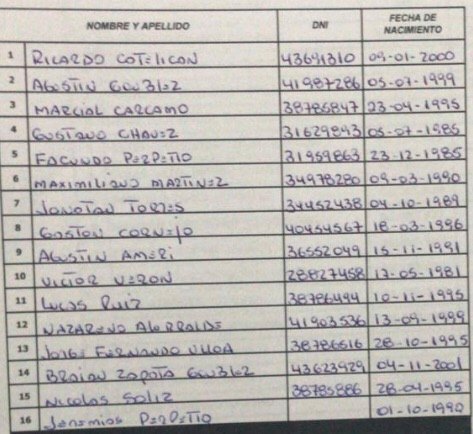 NOMBRE Y APELLIDO DNI FECHA DE NACIMIENTO
1 RICARDO COTELICAN 43641310 09-01-2000
2 AGUSTIN GONZALEZ 41987286 05-07-1999
3 MARCIAL CARCAMO 38785847 23-04-1995
4 GUSTAVO CHAVEZ 31629893 05-07-1985
5 FACUNDO PERPETTO 31959863 23-12-1985
6 MAXIMILIANO MARTINEZ 34978280 09-03-1990
7 JONATAN TORRES 34452438 04-10-1989
8 GASTON CORNEJO 40454567 18-03-1996
9 AGUSTIN AMERI 36552049 15-11-1991
10 VICTOR VERON 28827458 17-05-1981
11 LUCAS RUIZ 38786494 10-11-1995
12 NAZARENO 41903536 13-09-1999
13 JORGE FERNANDO ULLOA 38786516 28-10-1995
14 BRAIAN ZAPATA GONZALEZ 43623929 04-11-2001
15 NICOLAS SALIZ 38785886 28-04-1995
16 JEREMIAS 01-10-1990